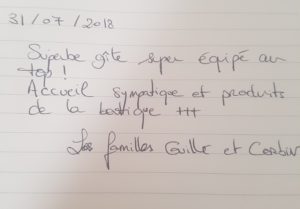 31/07/2018
Superbe gîte super équipé au
top !
Accueil sympatique et produits
de la boutique +++
Les familles Guille et Corbin